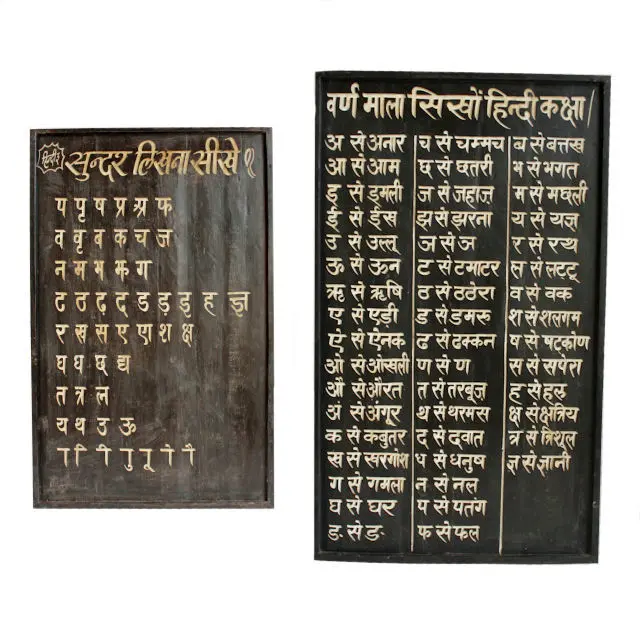 हिन्दी
सुन्दर लिखना सीखे १
प पृ ष प्र श्र फ
व वृ व क च ज
न म भ झ ग
ट ठ ढ़ द ड ड़ इ ह ज्ञ
र ख स ए ण श क्ष
घ ध छ द्य
त त्र ल
य थ उ ऊ
ा ि ी ु ू ो ै
वर्ण माला सिखों हिन्दी कक्षा /
अ से अनार
आ से आम
इ से इमली
ई से ईस
उ से उल्लू
ऊ से ऊन
ऋ से ऋषि
ए से एड़ी
ऐ से ऐनक
ओ से ओखली
औ से औरत
अं से अंगूर
क से कबुतर
ख से खरगोश
ग से गमला
घ से घर
ङ से ङ
च से चम्मच
छ से छतरी
ज से जहाज़
झ से झरना
ञ से ञ
ट से टमाटर
ठ से ठठेरा
ड से डमरू
ढ से ढक्कन
ण से ण
त से तरबूज
थ से थरमस
द से दवात
ध से धनुष
न से नल
प से पतंग
फ से फल
ब से बत्तख
भ से भगत
म से मछली
य से यज्ञ
र से रथ
ल से लटटू
व से वक
श से शलगम
ष से षटकोण
स से सपेरा
ह से हल
क्ष से क्षत्रिय
त्र से त्रिशूल
ज्ञ से ज्ञानी